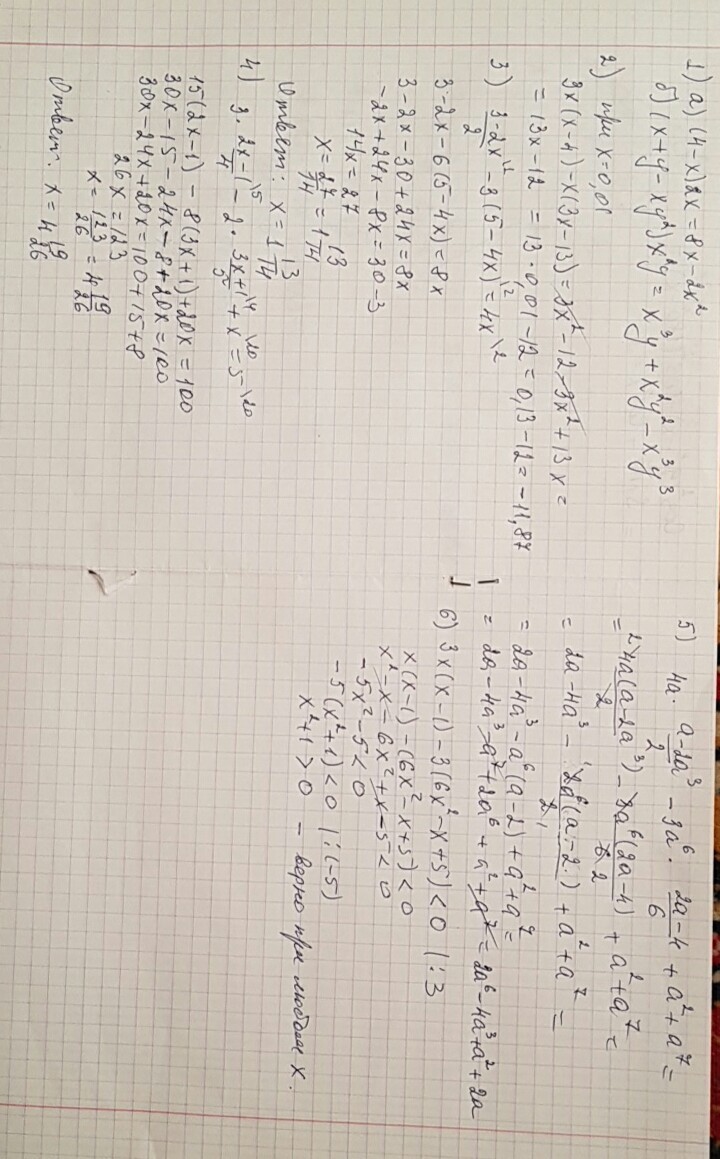 1) а) (4-x)2x = 8x - 2x²
б) (x+y-xy²)x²y = x³y + x²y² - x³y³
2) при x=0,01
3x(x-4) - x(3x-13) = 3x² - 12 - 3x² + 13x =
= 13x - 12 = 13·0,01 - 12 = 0,13 - 12 = -11,87
3) (3-2x)/2 \2 - 3(5-4x) \2 = 4x \2
3-2x-6(5-4x)=8x
3-2x-30+24x=8x
-2x+24x-8x=30-3
14x=27
x = 27/14 = 1 13/14
Ответ: x = 1 13/14
4) 3· (2x-1)/4 \5 - 2· (3x+1)/5 \4 + x \20 = 5 \20
15(2x-1) - 8(3x+1) + 20x = 100
30x-15-24x-8+20x=100
30x-24x+20x=100+15+8
26x=123
x = 123/26 = 4 19/26
Ответ: x = 4 19/26
5) 4a· (a-2a³)/2 - 3a⁶· (2a-4)/6 + a² + a⁷ =
= ²4a(a-2a³)/2 - 3a⁶(2a-4)/6 2 + a² + a⁷ =
= 2a-4a³ - ¹2a⁶(a-2)/2 1 + a² + a⁷ =
= 2a-4a³-a⁶(a-2)+a²+a⁷ =
= 2a-4a³-a⁷+2a⁶+a²+a⁷ = 2a⁶-4a³+a²+2a
6) 3x(x-1) - 3(6x²-x+5) < 0 |:3
x(x-1) - (6x²-x+5) < 0
x²-x-6x²+x-5 < 0
-5x²-5 < 0
-5(x²+1) < 0 |:(-5)
x²+1 > 0 - верно при любом x.